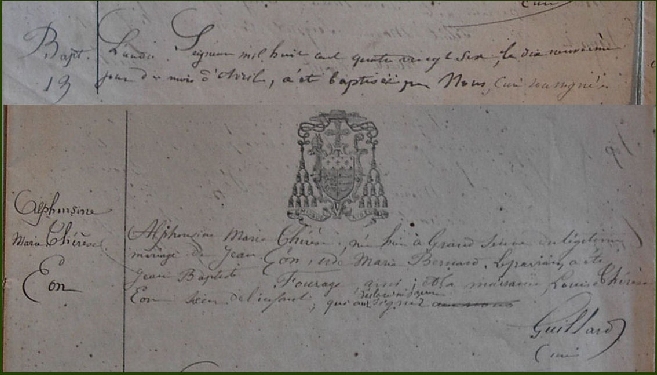 Bapt.
13
L'an du Seigneur mil huit cent quatre vingt six, le dix neuvième
jour du mois d'Avril, a été baptisée par Nous, Curé soussigné
Alphonsine
Marie Thérèse
Eon
Alphonsine Marie Thérèse, née hier à Grand du légitime
mariage de Jean Eon et de Marie Bernard. Le parrain a été
Jean Baptiste Fourage, ami; et la marraine Louise Thérèse
Eon sœur de l'enfant, qui
Guillard
Curé